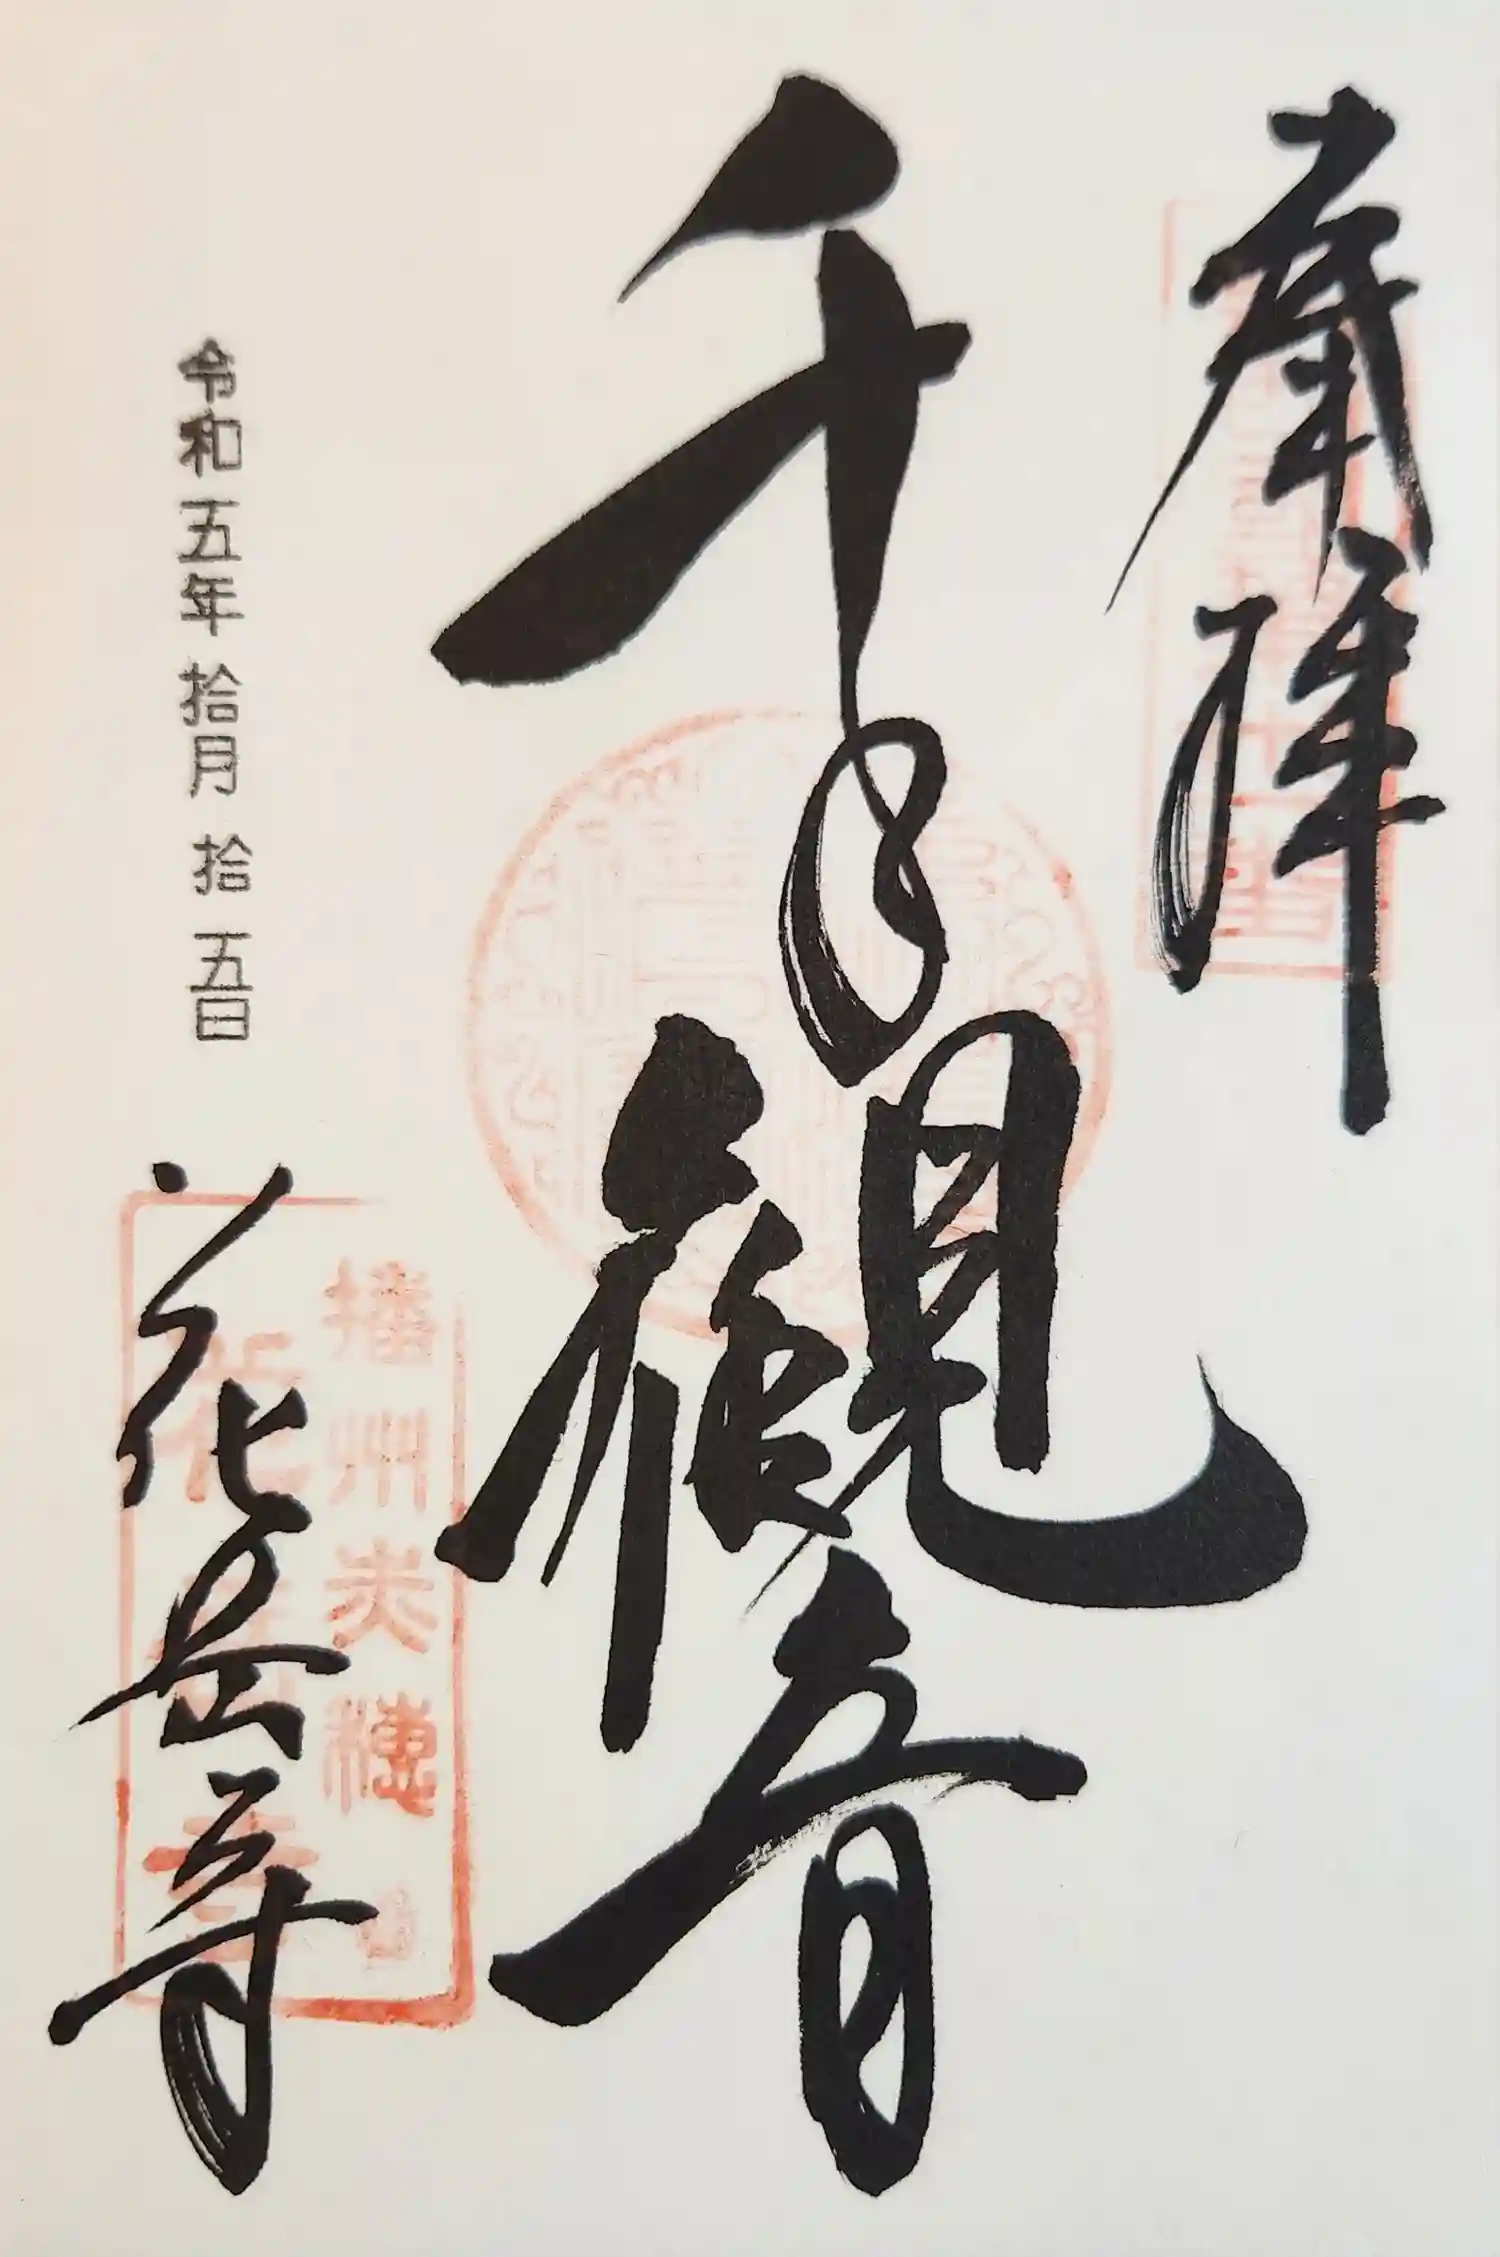 奉拝
千手観音
令和五年拾月拾五日
花岳寺
播州赤穂
花岳寺